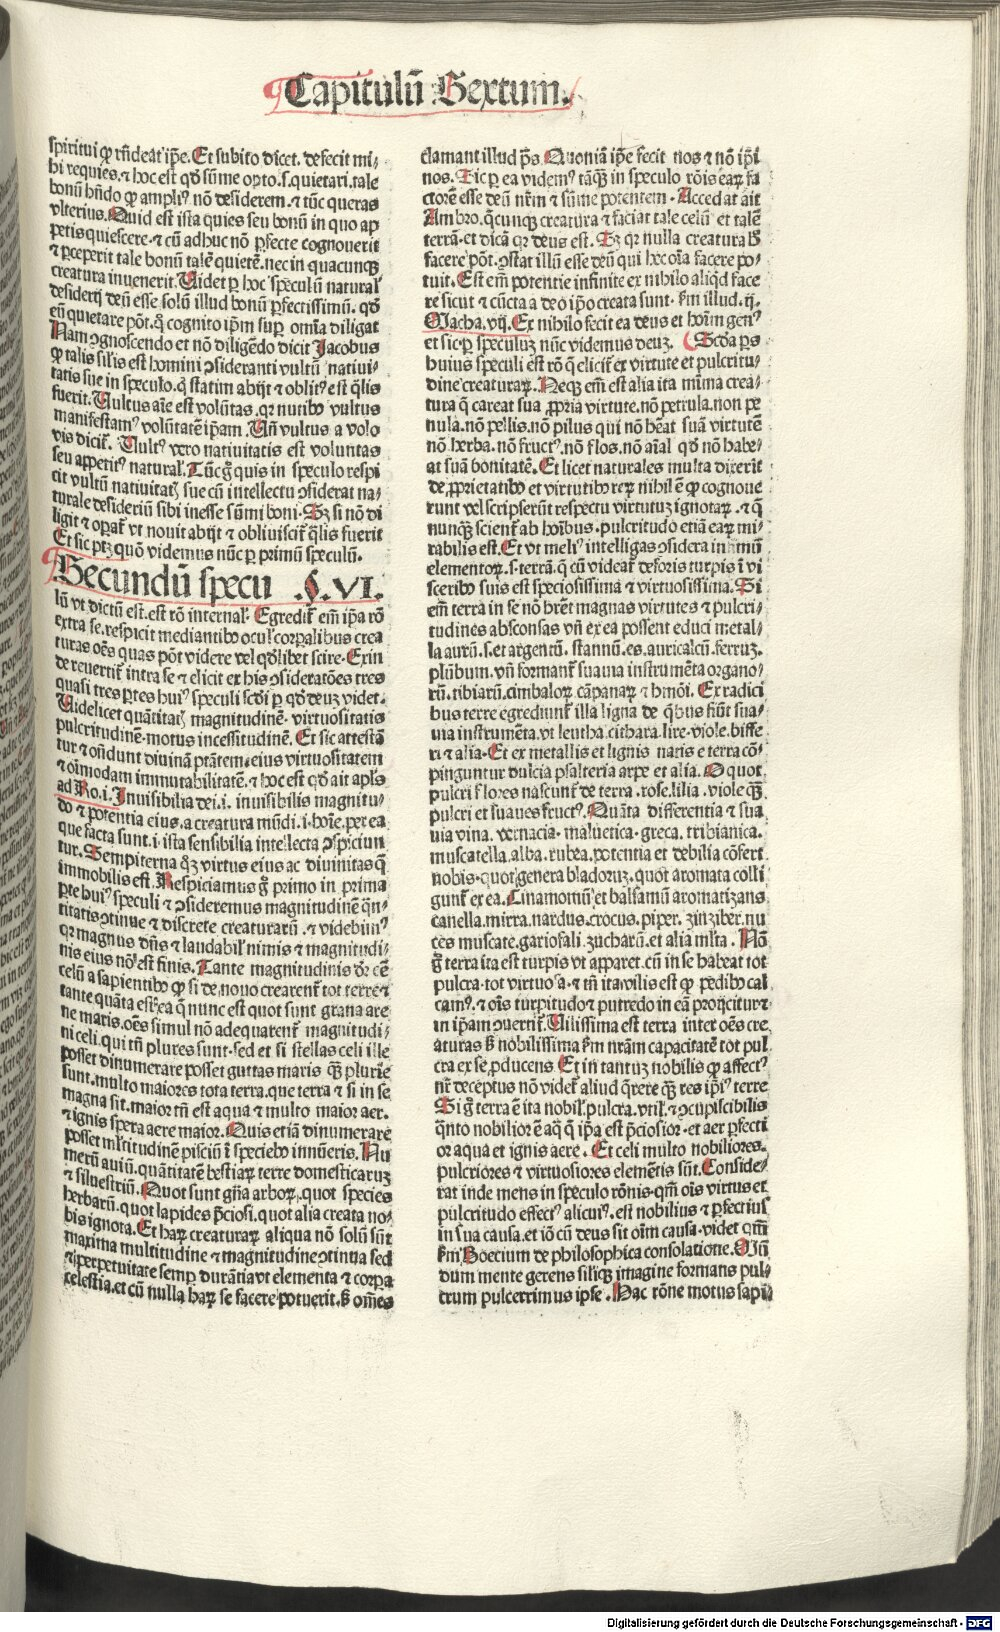 Capitulū Sextum.
spiritui ꝙ rn̄deat ip̄e. Et subito dicet. defecit mi-
bi requies. ⁊ hoc est qd̄ sūme opto .s. quietari. tale
bonū hn̄do ꝙ ampliꝰ nō desiderem. ⁊ tūc queras
vlterius. Quid est ista quies seu bonū in quo ap
petis quiescere. ⁊ cū adhuc nō ꝑfecte cognouerit
⁊ ꝑceperit tale bonū talē quietē. nec in quacunqꝫ
creatura inuenerit. Uidet ꝑ hoc speculū natural̓
desiderij deū esse solū illud bonū ꝑfectissimū. qd̄
eū quietare pōt. q̇ cognito ip̄m suꝑ om̄ia diligat
Nam ꝯgnoscendo et nō diligēdo dicit Jacobus
ꝙ talis sil̓is est homini ꝯsideranti vultū natiui-
tatis sue in speculo. q̇ statim abijt ⁊ oblitꝰ est q̄lis
fuerit. Uultus aīe est volūtas. qꝛ nutibꝰ vultus
manifestamꝰ volūtatē ip̄am. Uñ vultus a volo
vis dicit̄. Uultꝰ vero natiuitatis est voluntas
seu appetitꝰ natural̓. Tūc g̊ quis in speculo respi
cit vultū natiuitat̓ sue cū intellectu ꝯsiderat na-
turale desideriū sibi inesse sūmi boni. Sꝫ si nō di
ligit ⁊ oꝑat̄ vt nouit abijt ⁊ obliuiscit̄ q̄lis fuerit
Et sic ptꝫ quō videmus nūc ꝑ primū speculū.
Secundū specu .§.VI.
lū vt dictū est. est rō internal̓. Egredit̄ em̄ ip̄a rō
extra se. respicit mediantibꝰ ocul̓ corꝑalibus crea
turas oēs quas pōt videre vel qd̄libet scire. Exin
de reuertit̄ intra se ⁊ elicit ex his ꝯsideratōes tres
quasi tres ꝑtes huiꝰ speculi scd̄i ꝑ qd̄ deuꝫ videt.
Uidelicet quātitat̓ magnitudinē. virtuositatis
pulcritudinē. motus incessitudinē. Et sic attestā
tur ⁊ oñdunt diuinā ptātem. eius virtuositatem
⁊ oīmodam immutabilitatē. ⁊ hoc est qd̄ ait apl̓s
ad Ro.i. Inuisibilia dei .i. inuisibilis magnitu-
do ⁊ potentia eius. a creatura mūdi .i. hoīe. ꝑ ea
que facta sunt .i. ista sensibilia intellecta ꝯspiciun
tur. Sempiterna q̄ꝫ virtus eius ac diuinitas q̄
immobilis est. Respiciamus g̊ primo in prima
ꝑte huiꝰ speculi ⁊ ꝯsideremus magnitudinē q̄n-
titatis ꝯtinue ⁊ discrete creaturarū. ⁊ videbimꝰ
qꝛ magnus dn̄s ⁊ laudabil̓ nimis ⁊ magnitudi-
nis eius nō est finis. Tante magnitudinis dr̄ eē
celū a sapientibꝰ ꝙ si de nouo crearent̄ tot terre ⁊
tante quāta est ea q̄ nunc est quot sunt grana are
ne maris. oēs simul nō adequarent̄ magnitudi-
ni celi. qui tn̄ plures sunt. sed et si stellas celi ille
posset dinumerare posset guttas maris qꝫ plurīe
sunt. multo maiores tota terra. que terra ⁊ si in se
magna sit. maior tn̄ est aqua ⁊ multo maior aer.
⁊ ignis spera aere maior. Quis etiā dinumerare
posset mltitudinē pisciū ī speciebꝰ innūeris. Nu
merū auiū. quātitatē bestiaꝝ terre domesticaruꝫ
⁊ siluestriū. Quot sunt gn̄a arboꝝ. quot species
herbarū. quot lapides p̄ciosi. quot alia creata no-
bis ignota. Et haꝝ creaturaꝝ aliqua nō solū sūt
maxima multitudine ⁊ magnitudine ꝯtinua sed
⁊ ꝑpetuitate semꝑ durātia vt elementa ⁊ corpa
celestia. et cū nulla haꝝ se facere potuerit. s̄ om̄es
clamant illud p̄s Quoniā ip̄e fecit nos ⁊ nō ip̄i
nos. Sic ꝑ ea videmꝰ tāqꝫ in speculo rōis eaꝝ fa
ctorē esse deū nr̄m ⁊ sūme potentem. Accedat ait
Ambro. q̄cunqꝫ creatura ⁊ faciat tale celū et talē
terrā. et dicā qꝛ deus est. Sꝫ qꝛ nulla creatura h̄
facere pōt. ꝯstat illū esse deū qui hec oīa facere po-
tuit. Est em̄ potentie infinite ex nihilo aliqd̄ face
re sicut ⁊ cūcta a deo ip̄o creata sunt. s̄m illud .ij.
Macha.vij. Ex nihilo fecit ea deus et hoīm genꝰ
et sic ꝑ speculuꝫ nūc videmus deuꝫ. Scd̄a ꝑs
huius speculi est rō q̄ elicit̄ ex virtute et pulcritu-
dine creaturaꝝ. Neqꝫ em̄ est alia ita mīma crea-
tura q̄ careat sua ꝓpria virtute. nō petrula. non pe
nula. nō pellis. nō pilus qui nō hēat suā virtutē
nō herba. nō fructꝰ. nō flos. nō aīal qd̄ nō habe-
at suā bonitatē. Et licet naturales multa dixerīt
de ꝓprietatibꝰ et virtutibꝰ reꝝ nihil ē ꝙ cognoue
runt vel scripserūt respectu virtutuꝫ ignotaꝝ. ⁊ q̄
nunqꝫ scient̄ ab hoībus. pulcritudo etiā eaꝝ mi-
rabilis est. Et vt meliꝰ intelligas ꝯsidera infimū
elementoꝝ .s. terrā. q̄ cū videat̄ deforis turpis ī vi
sceribꝰ suis est speciosissima ⁊ virtuosissima. Si
em̄ terra in se nō hr̄et magnas virtutes ⁊ pulcri-
tudines absconsas vñ ex ea possent educi metal-
la aurū .s. et argentū. stannū. es. auricalcū. ferruꝫ.
plūbum. vñ formant̄ suauia instrumēta organo-
rū. tibiarū. cimbaloꝝ. cāpanaꝝ ⁊ hmōi. Ex radici
bus terre egrediunt̄ illa ligna de qbꝰ fiūt sua-
uia instrumēta. vt leutha. cithara. lire. viole. biffe
ri ⁊ alia. Et ex metallis et lignis naris e terra cō-
pinguntur dulcia psalteria arpe et alia. O quot
pulcri flores nascunt̄ de terra. rose. lilia. viole qꝫ
pulcri et suaues fructꝰ. Quāta differentia ⁊ sua
uia vina. vernacia. maluetica. greca. tribianica.
muscatella. alba. rubea. potentia et debilia cōfert
nobis. quot genera bladoruꝫ. quot aromata colli
gunt̄ ex ea. Cinamomū et balsamū aromatizans
canella. mirra. nardus. crocus. piper. zinziber. nu
ces muscate. gariofali. zucharū. et alia ml̓ta. Non
g̊ terra ita est turpis vt apparet. cū in se habeat tot
pulcra. tot virtuosa. ⁊ tn̄ ita vilis est ꝙ pedibꝰ cal
camꝰ. ⁊ oīs turpitudo ⁊ putredo in eā proijcitur ⁊
in ip̄am ꝯuertit̄. Uilissima est terra inter oēs cre
aturas s̄ nobilissima s̄m nr̄am capacitatē tot pul
cra ex se ꝓducens. Et in tantuꝫ nobilis ꝙ affectꝰ
nr̄ deceptus nō videt̄ aliud q̄rere qꝫ res ip̄iꝰ terre
Si g̊ terra ē ita nobil̓. pulcra. vtil̓. ⁊ ꝯcupiscibilis
q̄nto nobilior ē aq̄ q̄ ip̄a est p̄ciosior. et aer ꝑfecti
or aqua et ignis aere. Et celi multo nobiliores.
pulcriores ⁊ virtuosiores elemētis sūt. Conside-
rat inde mens in speculo rōnis. qm̄ oīs virtus et
pulcritudo effectꝰ alicuiꝰ. est nobilius ⁊ ꝑfectius
in sua causa. et iō cū deus sit oīm causa. videt qm̄
s̄m Boecium de philosophica consolatione. Mū
dum mente gerens siliqꝫ imagine formans pul-
crum pulcerrimus ipse. Hac rōne motus sapi
Digitalisierung gefördert durch die Deutsche Forschungsgemeinschaft - DFG